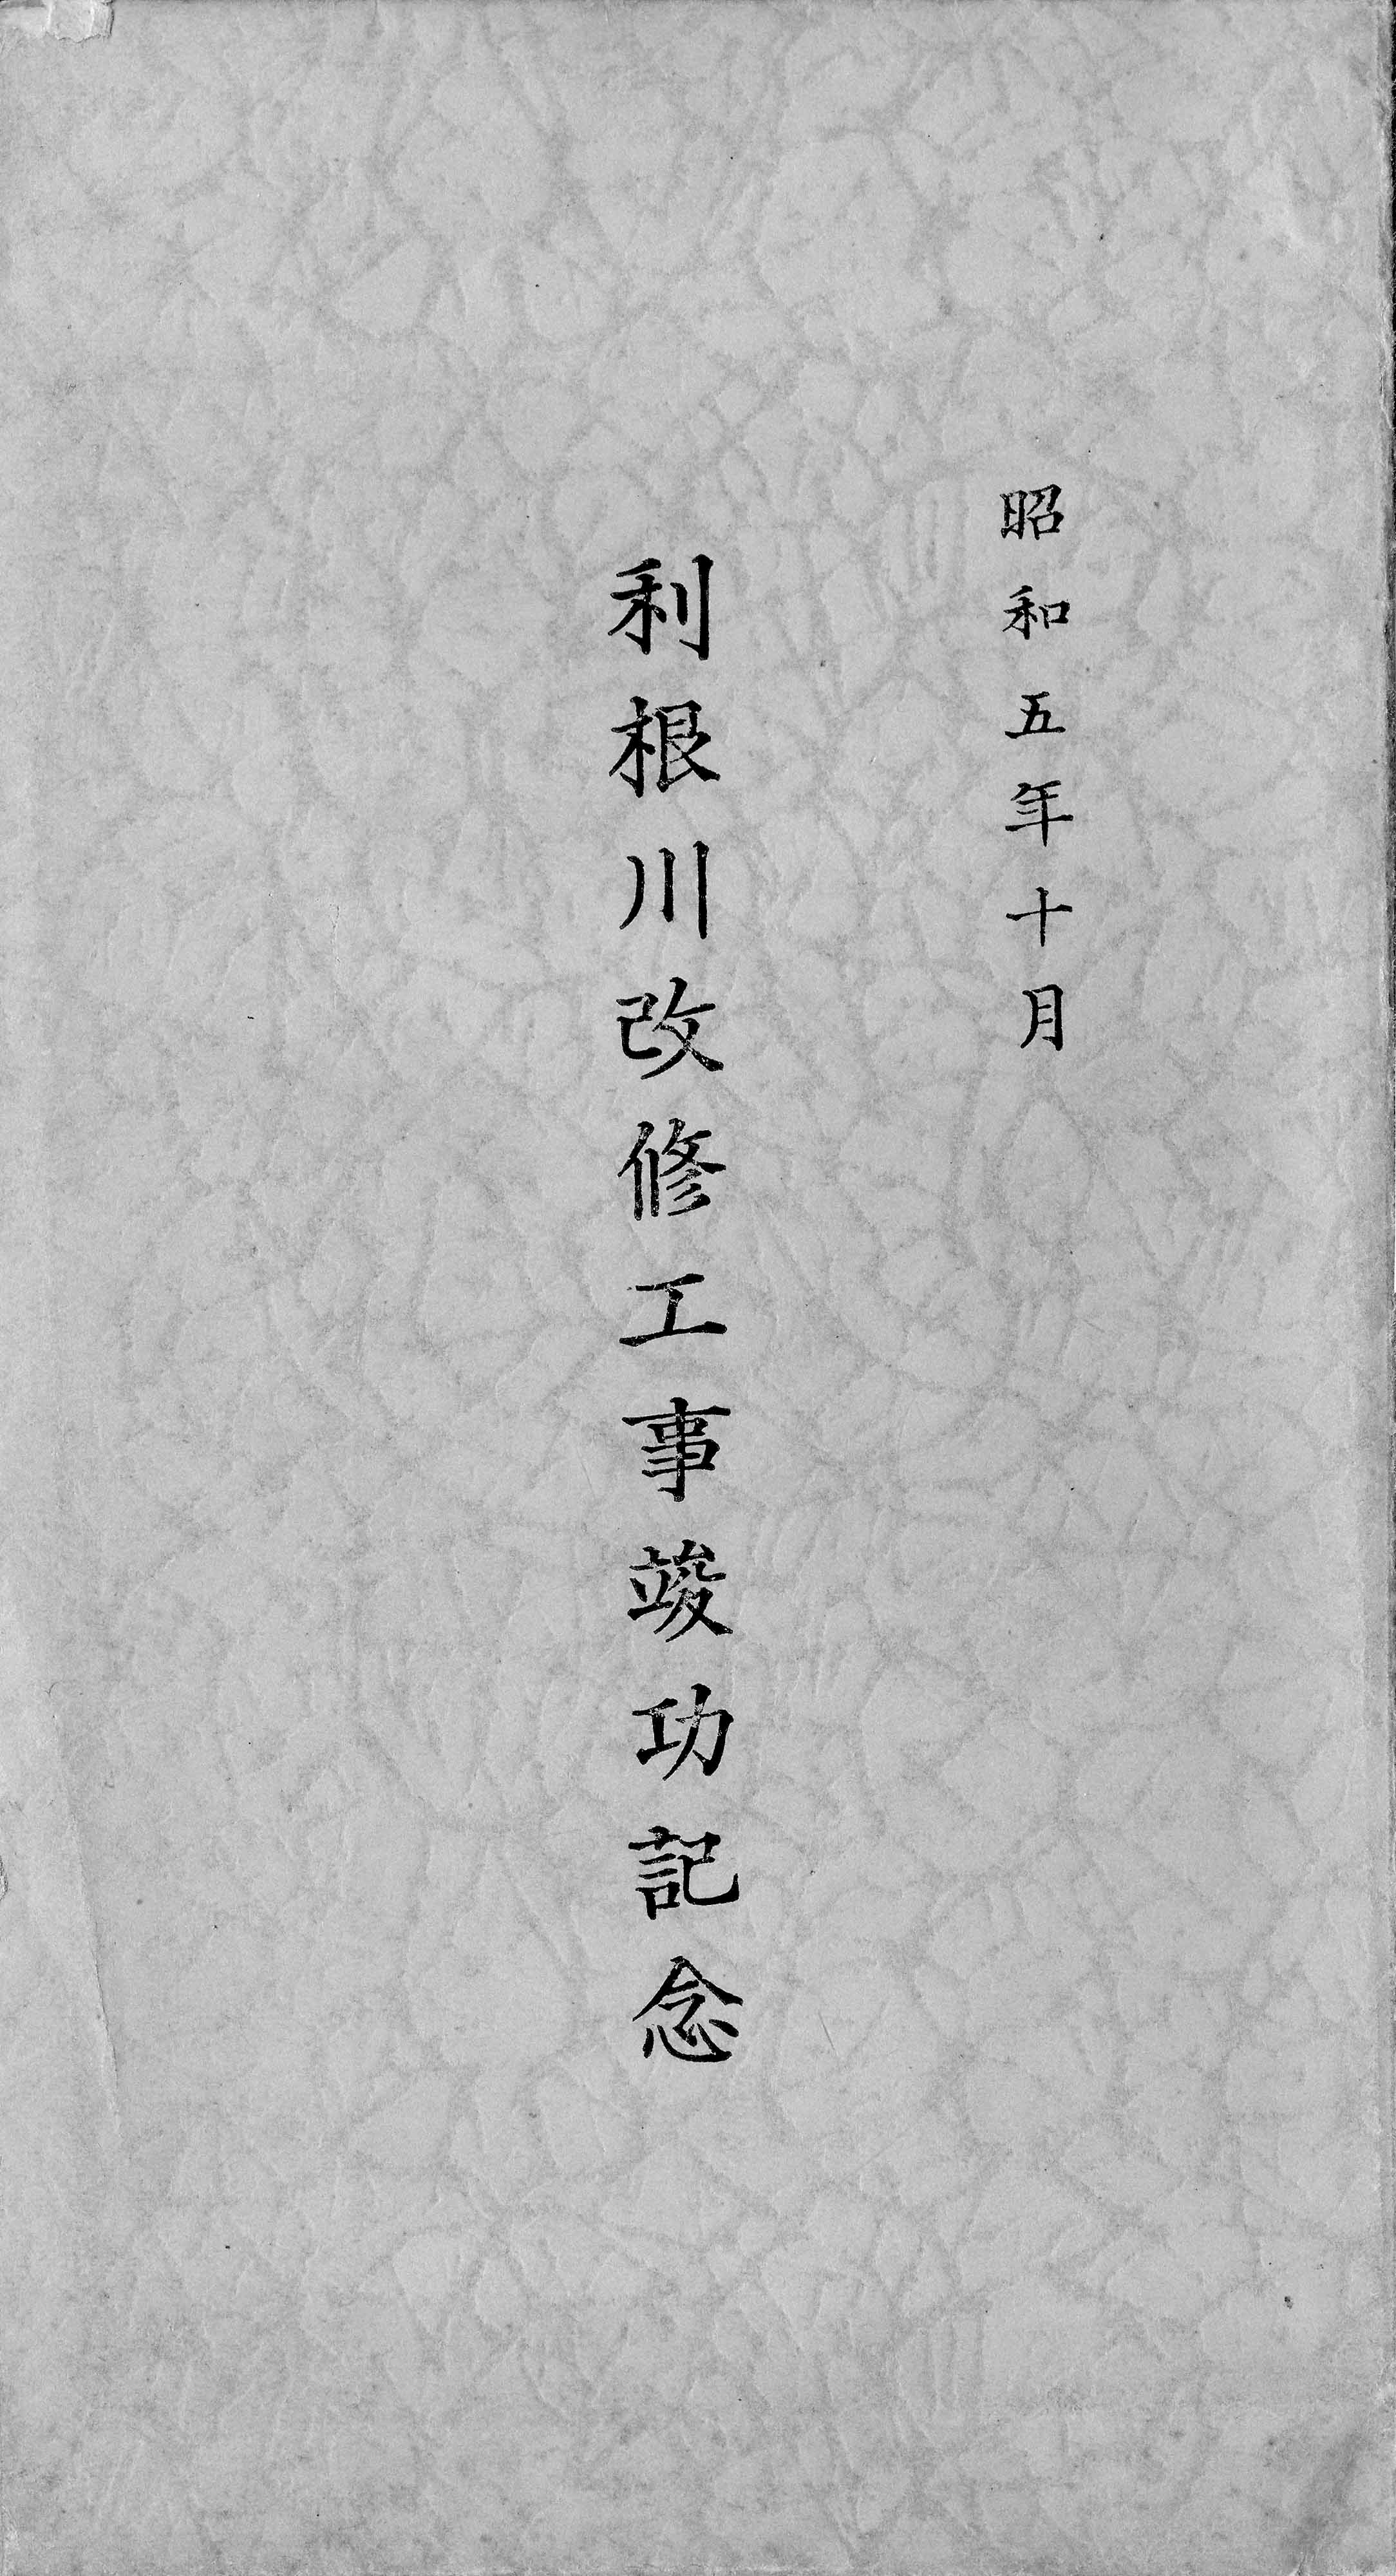 昭和五年十月
利根川改修工事竣功記念